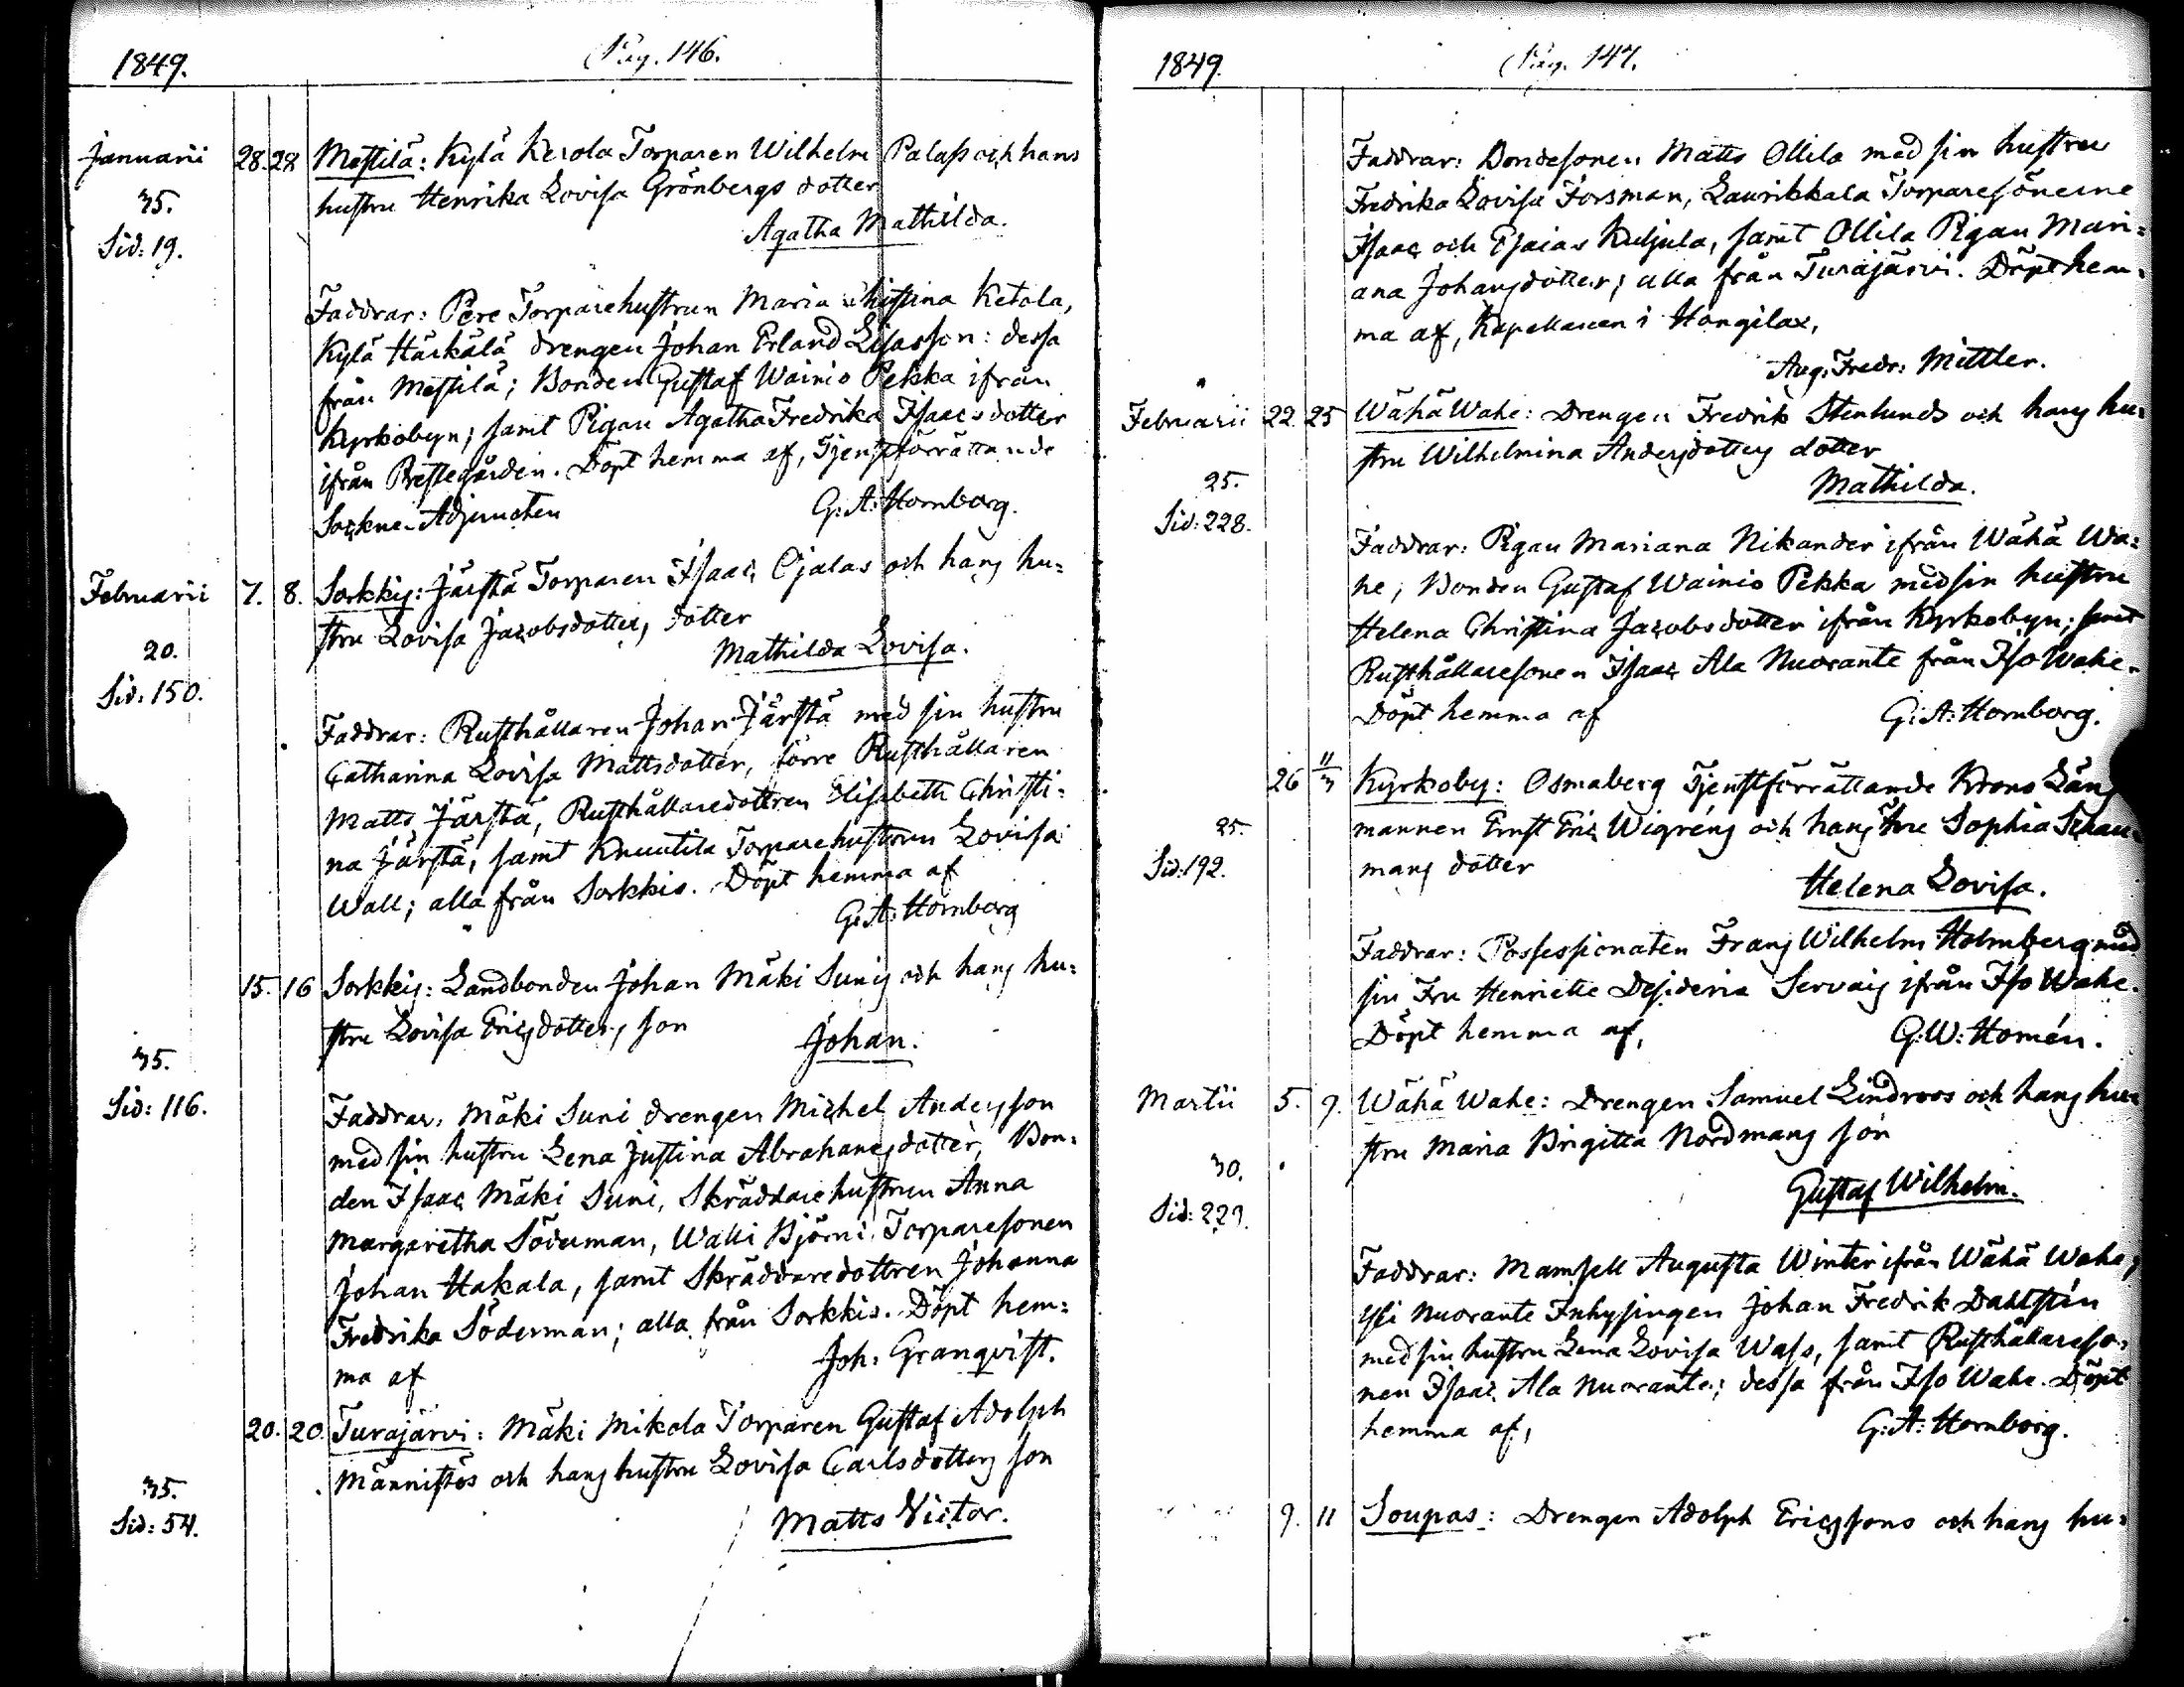 1849. Pag. 146.
Januarii 28. 28 Mestilä: Kylä Kerola Torparen Wilhelm Palass och hans
35. hustru Henrika Lovisa Grönbergs dotter
Sid: 19. Agatha Mathilda.
Faddrar: Pere Torparehustrun Maria Christina Ketola,
Kylä Härkälä drengen Johan Erland Lisasson: dessa
från Mestilä; Bonden Gustaf Wainio Pekka ifrån
Kyrkobyn; samt Pigan Agatha Fredrika Isaacsdotter
ifrån Prestegården. Döpt hemma af, Tjenstförrättande
Sockne-Adjuncten G: A: Hornborg.
Februarii 7. 8. Sorkkis: Järstä Torparen Isaac Ojalas och hans hu=
20. stru Lovisa Jacobsdotters dotter
Sid: 150. Mathilda Lovisa.
Faddrar: Rusthållaren Johan Järstä med sin hustru
Catharina Lovisa Mattsdotter, förre Rusthållaren
Matts Järstä, Rusthållaredottren Elisabeth Christi=
na Järstä, samt Knuutila Torparehustrun Lovisa
Wall; alla från Sorkkis. Döpt hemma af
G: A: Hornborg
15. 16 Sorkkis: Landbonden Johan Mäki Sunis och hans hu=
stru Lovisa Ericsdotters son
35. Johan.
Sid: 116. Faddrar: Mäki Suni drengen Michel Andersson
med sin hustru Lena Justina Abrahamsdotter, Bon=
den Isaac Mäki Suni, Skräddarehustrun Anna
Margaretha Söderman, Walli Björni Torparesonen
Johan Hakala, samt Skräddaredottren Johanna
Fredrika Söderman; alla från Sorkkis. Döpt hem=
ma af Joh: Granqvist.
20. 20. Turajärvi: Mäki Mikola Torparen Gustaf Adolph
Männistös och hans hustru Lovisa Carlsdotters son
35.
Sid: 54. Matts Victor.
1849. Pag. 147.
Faddrar: Bondesonen Matts Ollila med sin hustru
Fredrika Lovisa Forsman, Laurikkala Torparesönerne
Isaac och Esaias Kuljula, samt Ollila Pigan Mari=
ana Johansdotter; alla från Turajärvi. Döpt hem=
ma af, Kapellanen i Hongilax,
Aug: Fredr: Mittler.
Februarii 22. 25 Wähä Wahe: Drengen Fredrik Stenlunds och hans hu=
stru Wilhelmina Andersdotters dotter
25. Mathilda.
Sid: 228.
Faddrar: Pigan Mariana Nikander ifrån Wähä Wa=
he; Bonden Gustaf Wainio Pekka med sin hustru
Helena Christina Jacobsdotter ifrån Kyrkobyn; samt
Rusthållaresonen Isaac Ala Nuorante från Iso Wahe.
Döpt hemma af G: A: Hornborg.
26 11/3 Kyrkoby: Osmaberg Tjenstförrättande Krono Läns
25. mannen Ernst Eric Wigréns och hans Fru Sophia Schau=
Sid: 192. mans dotter
Helena Lovisa.
Faddrar: Possessionaten Frans Wilhelm Holmberg med
sin Fru Henriette Desideria Servais ifrån Iso Wahe.
Döpt hemma af, G: W: Homén.
Martii 5. 9. Wähä Wahe: Drengen Samuel Lindroos och hans hu=
stru Maria Brigitta Nordmans son
30. Gustaf Wilhelm.
Sid: 229.
Faddrar: Mamsell Augusta Winter ifrån Wähä Wahe;
Yli Nuorante Inhysingen Johan Fredrik Dahlstén
med sin hustru Lena Lovisa Wass, samt Rusthållareso=
nen Isaac Ala Nuorante; dessa från Iso Wahe. Döpt
hemma af, G: A: Hornborg.
9. 11 Soupas: Drengen Adolph Ericssons och hans hu=